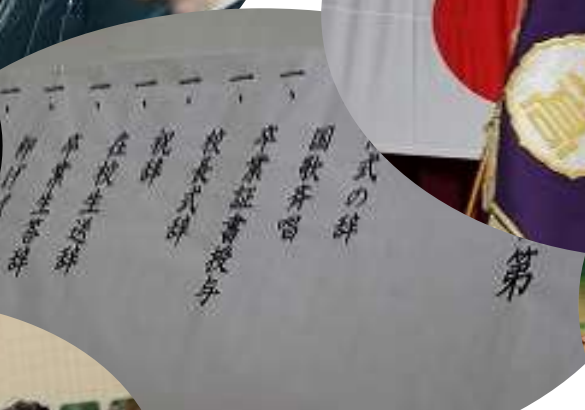 第
式の辞
一、国歌斉唱
一、卒業証書授与
一、校長式辞
一、祝辞
一、在校生送辞
一、卒業生答辞